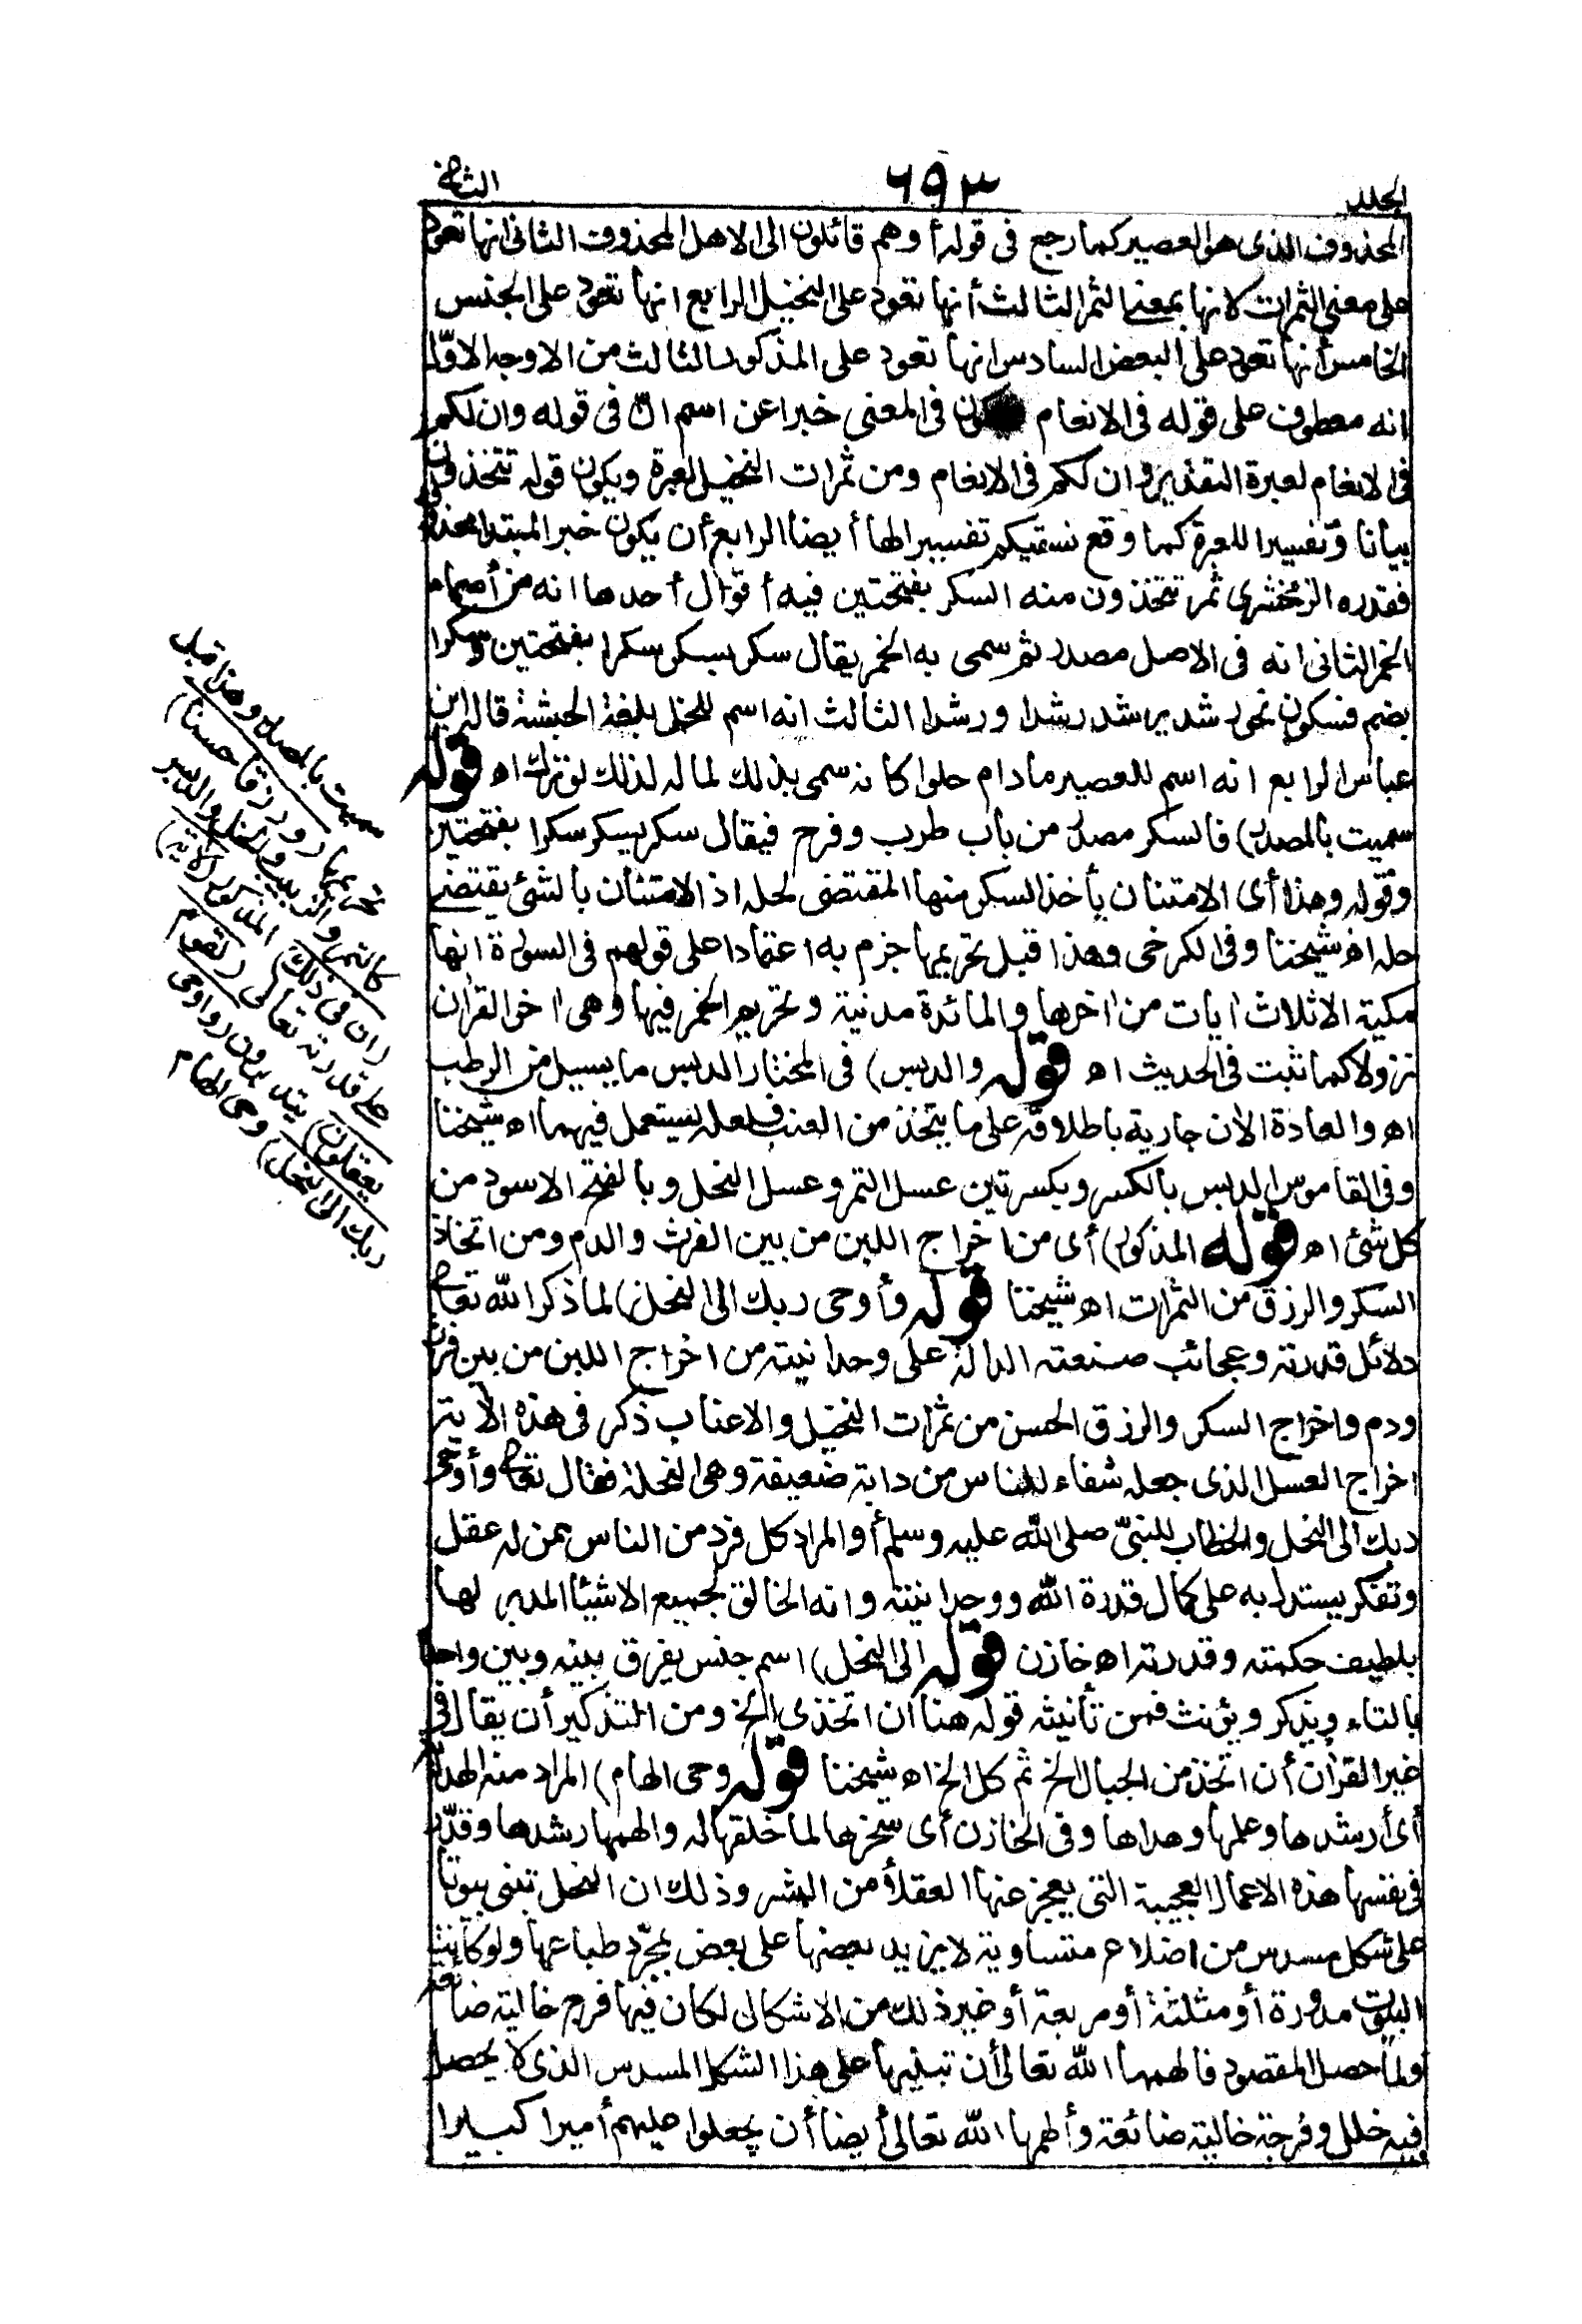 الجلد
٦٩٣
الثاني
المحذوف الذى هو العصير كما رجع فى قوله أو هم قائلون الى الاهل المحذوف الثانى انها تعود
على معنى الثمرات لانها بمعنى الثمر الثالث أنها تعود على النخيل الرابع انها تعود على الجنس
الخامس أنها تعود على البعض السادس انها تعود على المذكور الثالث من الاوجه الاول
انه معطوف على قوله فى الانعام فيكون فى المعنى خبرا عن اسم انّ فى قوله وان لكم
فى الانعام لعبرة التقدير وان لكم فى الانعام ومن ثمرات النخيل لعبرة ويكون قوله تتخذون
بيانا وتفسيرا للعبرة كما وقع نسقيكم تفسيرا لها أيضا الرابع أن يكون خبرا لمبتدا محذوف
فقدره الزمخشرى ثمر تتخذون منه السكر بفتحتين فيه أقوال أحدها انه من أسماء
الخمر الثانى انه فى الاصل مصدر ثم سمى به الخمر يقال سكر يسكر سكرا بفتحتين وسكرا
بضم فسكون نحو رشد يرشد رشدا ورشدا الثالث انه اسم للخل بلغة الحبشة قاله ابن
عباس الرابع انه اسم للعصير ما دام حلوا كانه سمى بذلك لما له لذلك لو ترك اه قوله
سميت بالمصدر) فالسكر مصدر من باب طرب وفرح فيقال سكر يسكر سكرا بفتحتين
وقوله وهذا أى الامتنان بأخذ السكر منها المقتضى لحله اذ الامتنان بالشئ يقتضى
حله اه شيخنا وفى الكرخى وهذا قبل تحريمها جزم به اعتمادا على قولهم فى السورة انها
مكية الا ثلاث ايات من اخرها والمائدة مدنية وتحريم الخمر فيها وهى اخر القران
نزولا كما ثبت فى الحديث اه قوله والدبس) فى المختار الدبس ما يسيل من الرطب
اه والعادة الان جارية باطلاقه على ما يتخذ من العنب فلعله يستعمل فيهما اه شيخنا
وفى القاموس الدبس بالكسر وبكسرتين عسل التمر وعسل النحل وبالفتح الاسود من
كل شئ اه قوله المذكور) أى من اخراج اللبن من بين الفرث والدم ومن اتخاذ
السكر والرزق من الثمرات اه شيخنا قوله وأوحى ربك الى النحل) لما ذكر الله تعالى
دلائل قدرته وعجائب صنعته الدالة على وحدانيته من اخراج اللبن من بين فرث
ودم واخراج السكر والرزق الحسن من ثمرات النخيل والاعناب ذكر فى هذه الآية
اخراج العسل الذى جعله شفاء للناس من دابة ضعيفة وهى النحلة فقال تعالى وأوحى
ربك الى النحل والخطاب للنبىّ صلى الله عليه وسلم أو المراد كل فرد من الناس ممن له عقل
وتفكر يستدل به على كمال قدرة الله ووحدانيته وانه الخالق لجميع الاشيا المدبر لها
بلطيف حكمته وقدرته اه خازن قوله الى النحل) اسم جنس يفرق بينه وبين واحده
بالتاء ويذكر ويؤنث فمن تأنيثه قوله هنا ان اتخذى الخ ومن التذكير أن يقال فى
غير القران أن اتخذ من الجبال الخ ثم كل الخ اه شيخنا قوله وحى الهام) المراد منه الهداية
أى أرشدها وعلمها وهداها وفى الخازن أى سخرها لما خلقها له والهمها رشدها وقدّر
فى نفسها هذه الاعمال العجيبة التى يعجز عنها العقلاء من البشر وذلك ان النحل تبنى بيوتا
على شكل مسدس من اضلاع متساوية لا يزيد بعضها على بعض بمجرّد طباعها ولو كانت
البيوت مدورة أو مثلثة أو مربعة أو غير ذلك من الاشكال لكان فيها فرج خالية ضائعة
ولما حصل المقصود فالهمها الله تعالى أن تبنيها على هذا الشكل المسدس الذى لا يحصل
فيه خلل وفرجة خالية ضائعة وألهمها الله تعالى أيضا أن يجعلوا عليهم أميرا كبيرا
سميت بالمصدر وهذا قبل
تحريمها (ورزقا حسنا)
كالتمر والزبيب والخل والدبس
(ان فى ذلك) المذكور (لآية)
على قدرته تعالى (لقوم
يعقلون) يتدبرون (وأوحى
ربك الى النحل) وحى الهام